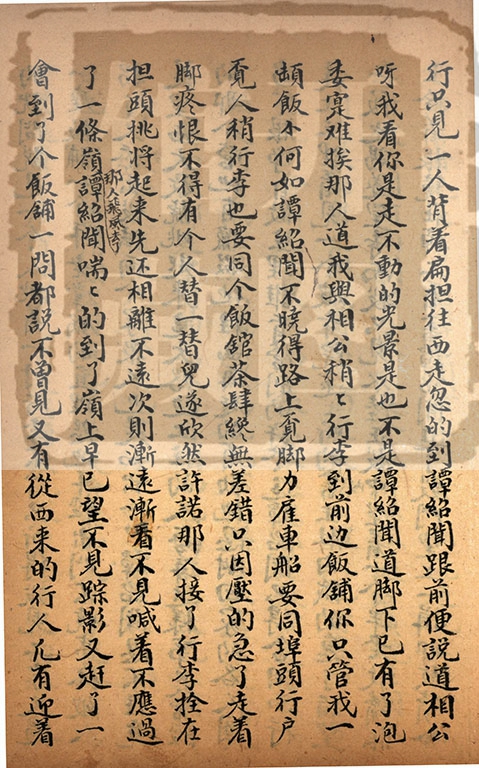 行只見一人背着扁担往西走忽的到譚紹聞跟前便說道相公
呀我看你是走不動的光景是也不是譚紹聞道脚下已有了泡
委寔难挨那人道我與相公稍〻行李到前边飯鋪你只管我一
頓飯小何如譚紹聞不曉得路上覓脚力雇車船要同埠頭行户
覓人稍行李也要同个飯舘茶肆纔無差錯只因壓的急了走着
脚疼恨不得有个人替一替兒遂欣然許諾那人接了行李拴在
担頭挑將起来先还相離不遠次則漸遠漸看不見喊着不應過
了一條嶺譚紹聞喘〻的到了嶺上早已望不見踪影又赶了一
那人飛風去了
會到了个飯舖一問都説不曾見又有從西来的行人凡有迎着